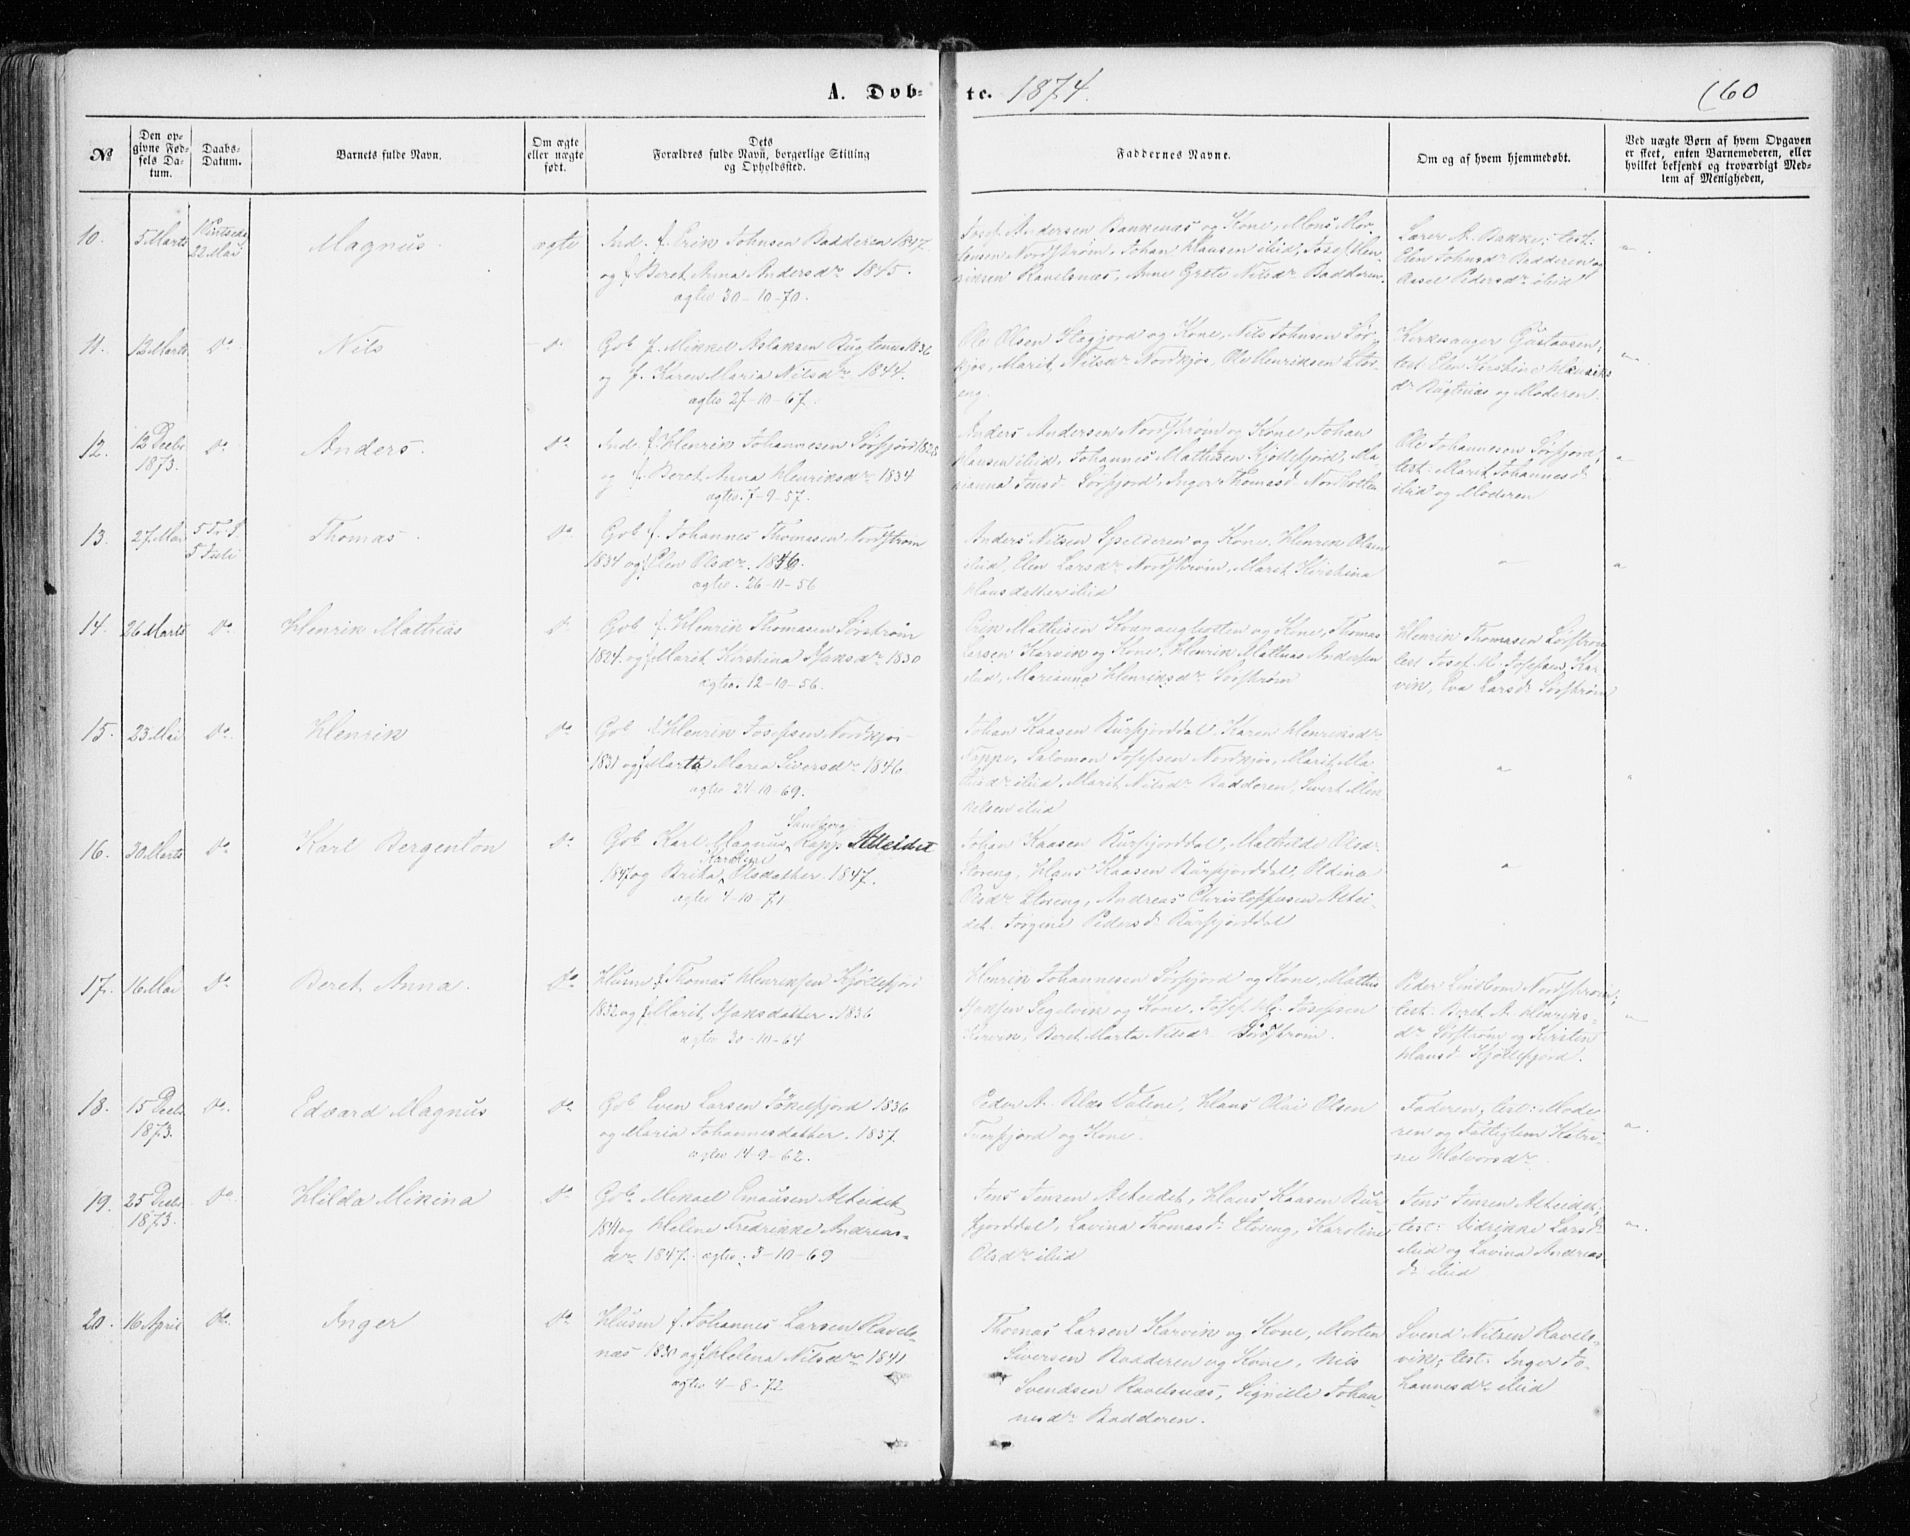 A. Døb-
te. 1874.
(60
№
Den op-
givne Fød-
sels Da-
tum.
Daabs-
Datum.
Barnets fulde Navn.
Om ægte
eller uægte
født.
Dets
Forældres fulde Navn, borgerlige Stilling
og Opholdssted.
Faddernes Navne.
Om og af hvem hjemmedøbt.
Ved uægte Børn af hvem Opgaven
er skeet, enten Barnemoderen, eller
hvilket bekjendt og troværdigt Med-
lem af Menigheden,
10.
5 Marts
22 Mai
Magnus
ægte
Ind. f. Erik Johnsen Badderen 1847
og f Beret Anna Andersdr 1845.
ægtev 30-10-70.
Josef Andersen Bankenæs og Kone, Mons Mor-
tensen Nordstrøm, Johan Klausen ibid, Josef Hen-
riksen Ravelsnæs, Anne Grete Nilsdr Badderen.
Lærer A. Bakke; test:
Elen Johnsdr Badderen og
Aasel Pedersdr ibid
11.
12 Marts
Do
Nils
Do
Gbb f. Mikkel Aslaksen Bugtenæs 1836
og f. Karen Maria Nilsdr 1844.
ægtev 27-10-67.
Ole Olsen Stegjord og Kone, Nils Johnsen Sør-
kjos, Marit Nilsdr Nordkjos, Ole Henriksen Stor-
eng.
Kirkesanger Gustavsen;
test Elen Kirstine Henriks
dr Bugtenæs og Moderen.
12.
12 Decbr
1873.
Do
Anders.
Do
Ind. f. Henrik Johannesen Sørfjord 1828
og f. Beret Anna Henriksdr 1834
ægtev. 7-9-57.
Anders Andersen Nordstrøm og Kone, Johan
Klausen ibid, Johannes Mathisen Kjøllefjord, Ma-
rianna Jensd Sørfjord, Inger Thomasd Nordbotten
Ole Johannesen Sørfjord;
test: Marit Johannesd
ibid og Moderen
13.
27 Mai
5 Tr. S.
5 Juli
Thomas
Do
Gbb f. Johannes Thomasen Nordstrøm
1834 og f Elen Olsdr. 1836.
ægtev. 26-11-56
Anders Nilsen Spilderen og Kone, Henrik Olsen
ibid, Elen Larsdr Nordstrøm, Maret Kirstina
Hansdatter ibid
14.
26 Marts
Do
Henrik Mathias
Do
Gbb f. Henrik Thomasen Sørstrøm
1824. og f Marit Kirstina Isaksdr 1830
ægtev. 12-10-56.
Erik Mathisen Kvænangbotten og Kone, Thomas
Larsen Karvik og Kone, Henrik Mathias Andersen
ibid, Marianna Henriksdr Sørstrøm
Henrik Thomasen Sørstrøm
test Josef H. Josefsen Kar-
vik, Eva Larsd Sørstrøm
15.
23 Mai
Do
Henrik
Do
Gbb f Henrik Josefsen Nordkjos
1831 og f Marta Maria Siversdr 1846
ægtev 24-10-69.
Johan Kaasen Burfjorddal, Karen Henriksdr
Toppe, Salomon Josefsen Nordkjos, Marit Ma-
tisdr ibid, Marit Nilsdr Badderen, Sivert Mik-
kelsen ibid
16.
30 Marts
Do
Karl Bergenton
Do
Gbb Karl Magnus Sandberg Rapp. Alteidet
1847 og Brita Karoline Olsdatter. 1847.
ægtev 4-10-71
Johan Kaasen Burfjorddal, Mathilde Olsdr
Storeng, Hans Kaasen Burfjorddal, Oldina
Olsdr Storeng, Andreas Christophersen Altei-
det. Jørgine Pedersd. Burfjorddal
17.
16 Mai
Do
Beret Anna.
Do
Husm f Thomas Henriksen Kjøllefjord
1832 og f Marit Isaksdatter. 1836
ægtev 30-10-64
Henrik Johannesen Sørfjord og Kone, Mathis
Isaksen Segelvik og Kone, Josef H. Josefsen
Karvik, Beret Marta Nilsdr Sørstrøm.
Peder Lindbom Nordstrøm;
test: Beret A. Henriks-
dr Sørstrøm og Kirsten
Hansd Kjøllefjord.
18.
15 Decbr
1873.
Do.
Edvard Magnus
Do
Gbb Even Larsen Jøkelfjord 1836
og Maria Johannesdatter. 1837.
ægtev 14-9-62.
Peder A. Klæs Valene, Hans Olai Olsen
Tverfjord og Kone.
Faderen; test: Mode-
ren og Fattiglem Katri-
ne Halvorsdr
19.
25 Decbr
1873.
Do
Hilda Mikina
Do
Gbb Mikael Emausen Alteidet
1841 og Helene Fredrikke Andreas-
dr 1847. ægtev. 3-10-69
Jens Jensen Alteidet, Hans Kaasen Bur-
fjorddal, Lavina Thomasd. Storeng, Karoline
Olsdr ibid
Jens Jensen Alteidet;
test: Didrikke Larsd
ibid og Lavina Andreas
d. ibid
20.
16 April
Do
Inger
Do
Husm f. Johannes Larsen Ravels-
næs 1830 og f Helena Nilsdr 1841
ægtev 4-8-72
Thomas Larsen Karvik og Kone, Morten
Siversen Badderen og Kone, Nils
Svendsen Ravelsnæs, Signille Johan-
nesdr Badderen.
Svend Nilsen Ravels-
vik; test. Inger Jo-
hannesdr ibid